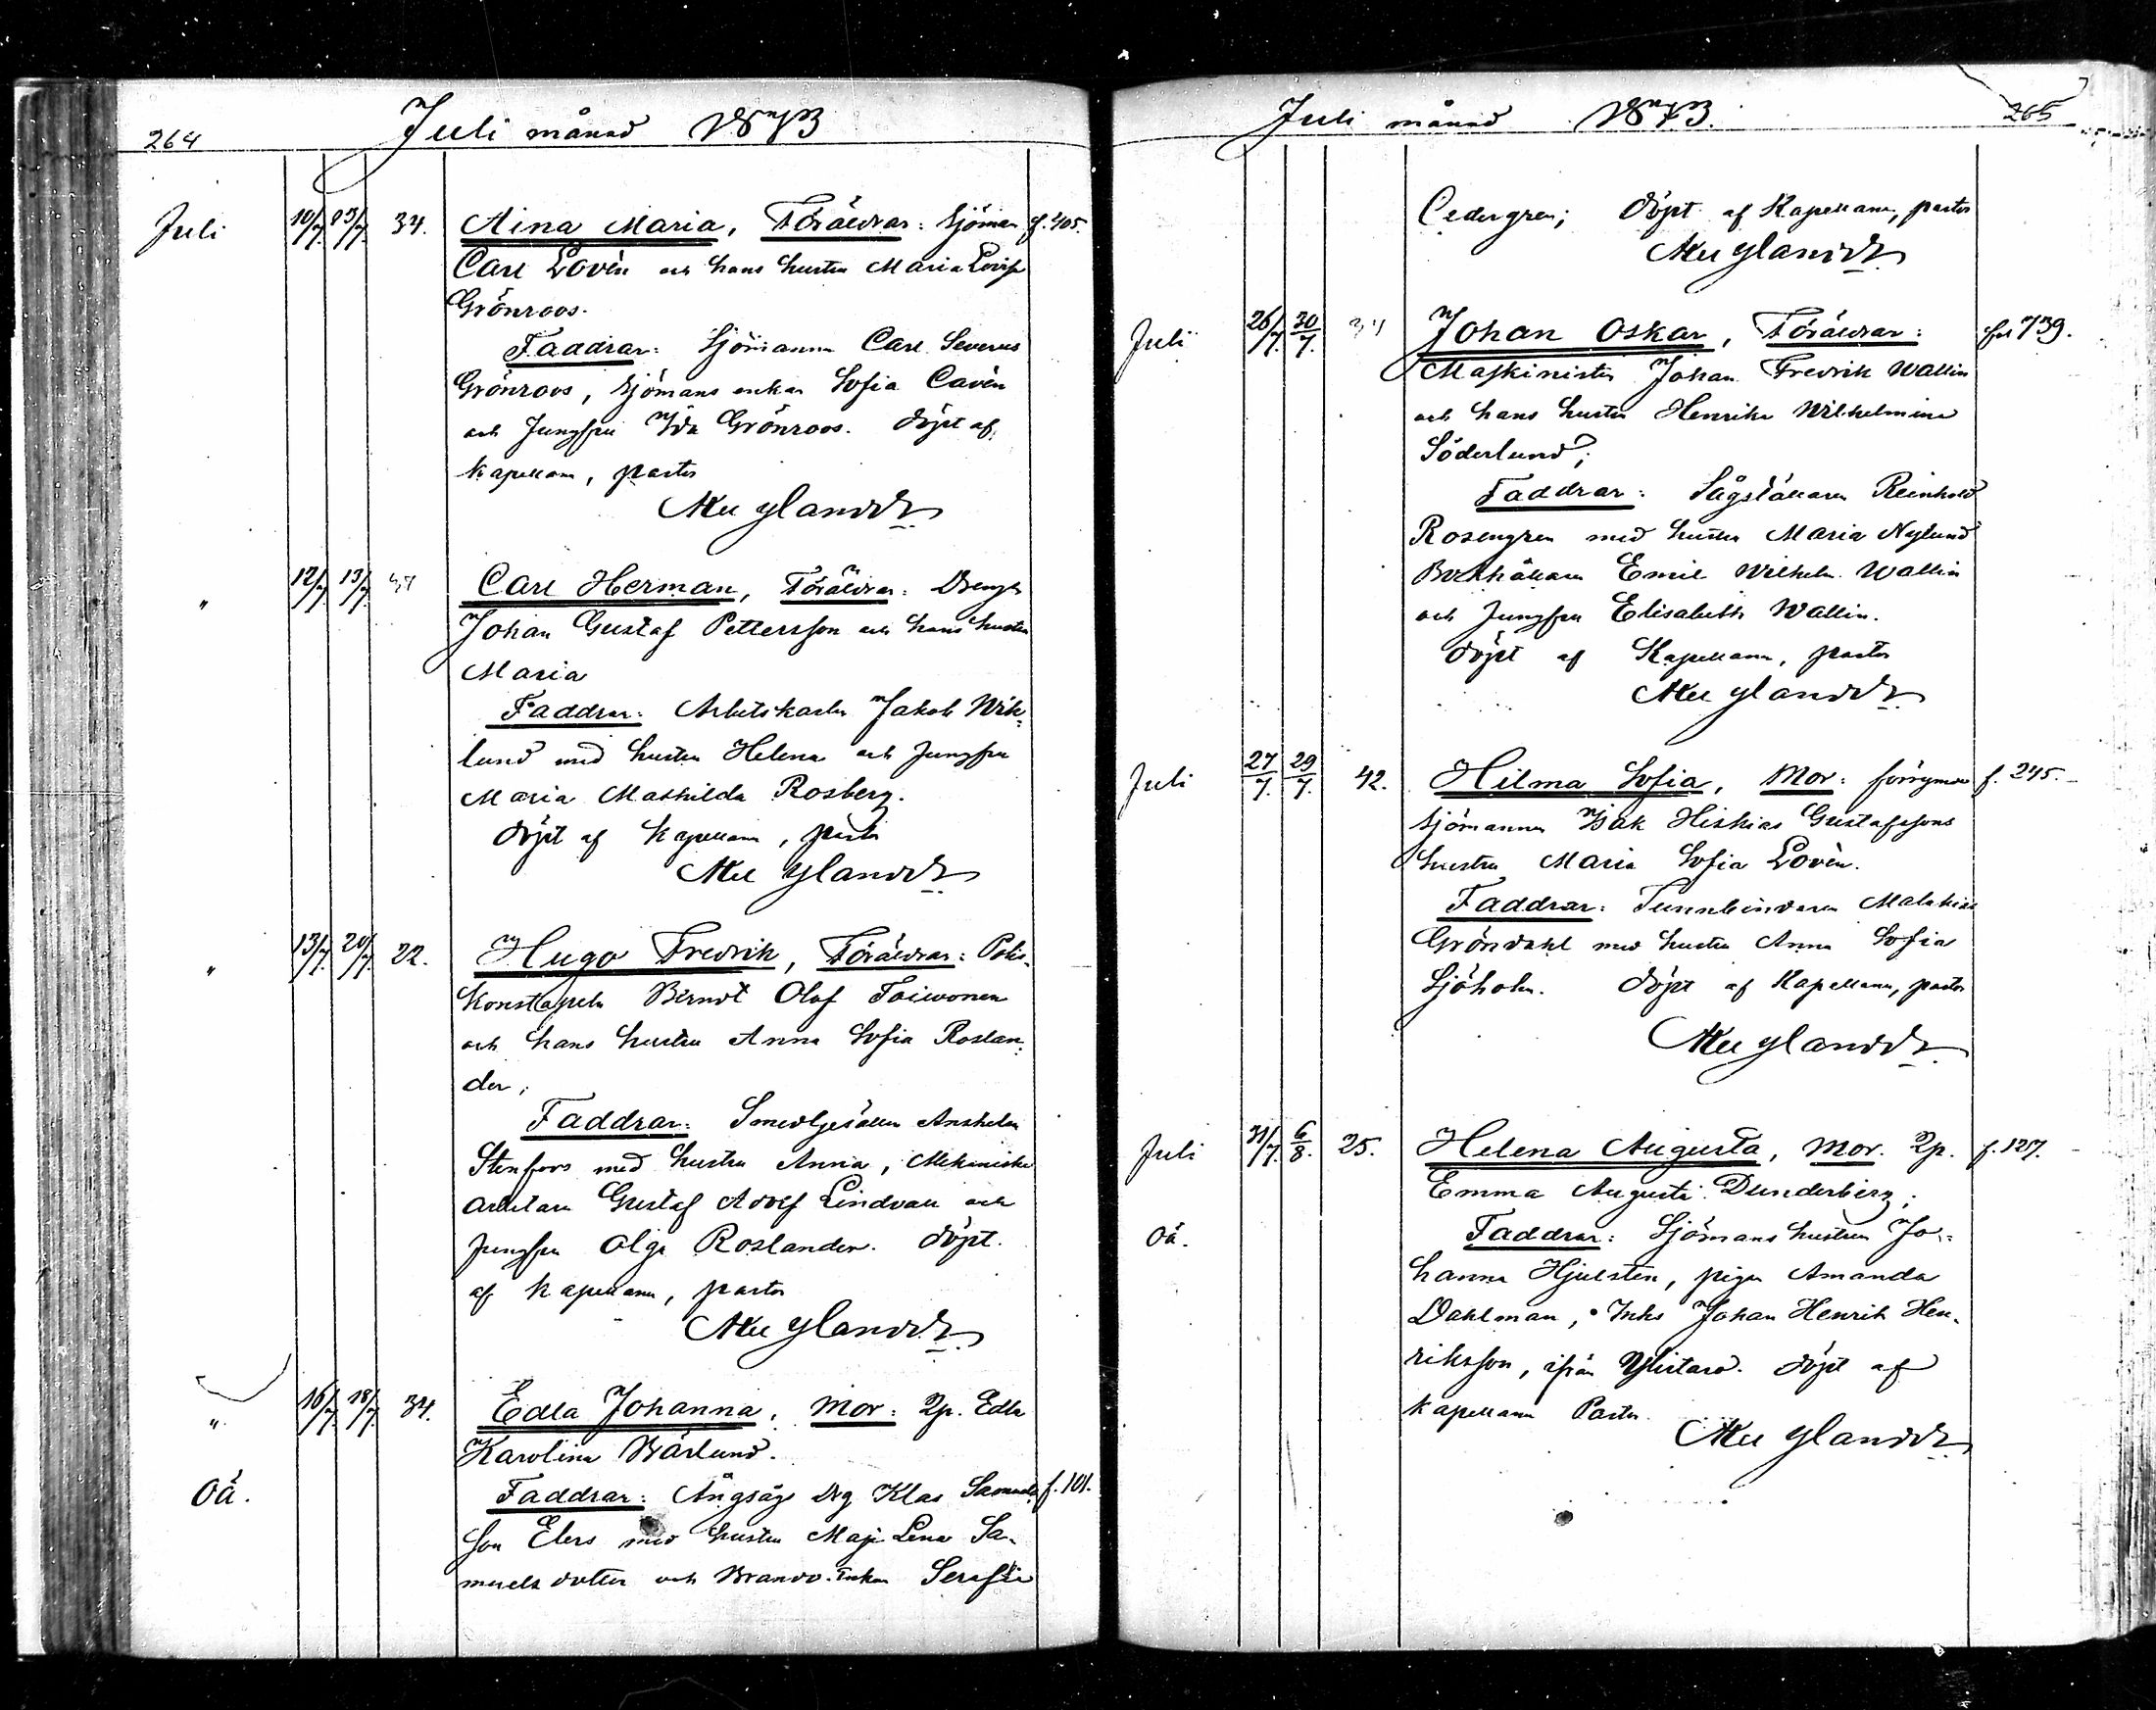 264
Juli månad 1873
Juli 10/7. 13/7. 34. Aina Maria, Föräldrar: Sjöman f. 405.
Carl Lovén och hans hustru Maria Lovisa
Grönroos.
Faddrar: Sjömannen Carl Severus
Grönroos, Sjömans enkan Sofia Cavén
och Jungfru Ida Grönroos. Döpt af
Kapellanen, pastor
Mu ylander
" 12/7. 13/7. Carl Herman, Föräldrar: Drengen
Johan Gustaf Pettersson och hans hustru
Maria
Faddrar: Arbetskarlen Jakob Wik-
lund med hustru Helena och Jungfru
Maria Mathilda Rosberg.
Döpt af Kapellanen, pastor
Mu ylander
" 13/7. 20/7. 22. Hugo Fredrik, Föräldrar: Polis-
Konstapeln Berndt Olof Toiwonen
och hans hustru Anna Sofia Roslan-
der;
Faddrar: Smedgesällen Anshelm
Stenfors med hustru Anna, Mekaniske
arbetaren Gustaf Adolf Lindvall och
Jungfru Olga Roslander. Döpt
af Kapellanen, pastor
Mu ylander
" 16/7. 18/7. 34. Edla Johanna, Mor: Qp. Edla
Karolina Bärlund.
Oä. Faddrar: Ångsågs Drg Klas Samuels f. 101.
son Elers med hustru Maja Lena Sa-
muels dotter och Brandv. Enkan Serafia
Juli månad 1873. 265
Cedergren; Döpt af Kapellanen, pastor
Mu ylander
Juli 26/7. 30/7. 34 Johan Oskar, Föräldrar: fol 739.
Maskinisten Johan Fredrik Wallin
och hans hustru Henrika Wilhelmina
Söderlund;
Faddrar: Sågställaren Reinhold
Rosengren med hustru Maria Nylund
Bokhållaren Emil Wilhelm Wallin
och Jungfru Elisabeth Wallin.
Döpt af Kapellanen, pastor
Mu ylander
Juli 27/7. 29/7. 42. Hilma Sofia, Mor: förrymde f. 245.
Sjömannen Isak Hiskias Gustafssons
hustru Maria Sofia Lovén.
Faddrar: Tunnbindaren Malakias
Gröndahl med hustru Anna Sofia
Sjöholm. Döpt af Kapellanen, pastor
Mu ylander
Juli 31/7. 6/8. 25. Helena Augusta, Mor. Qp. f. 127.
Emma Augusta Dunderberg;
Oä. Faddrar: Sjömans hustrun Jo-
hanna Hjulsten, pigan Amanda
Dahlman, Inhs Johan Henrik Hen-
riksson, ifrån Ylistaro. Döpt af
Kapellanen Pastor
Mu ylander